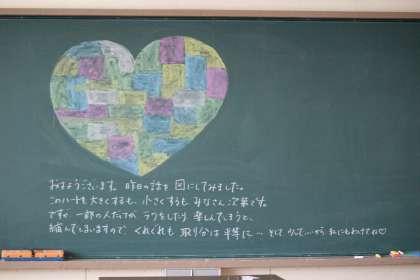 おはようございます。昨日の話を図にしてみました。
このハートを大きくするも、小さくするも みなさん次第です。
ですが、一部の人だけが ラクをしたり 楽しんでしまうと、
縮んでしまいますので、くれぐれも 取り分は 平等に… そして 少し…から 私にもわけてね♡